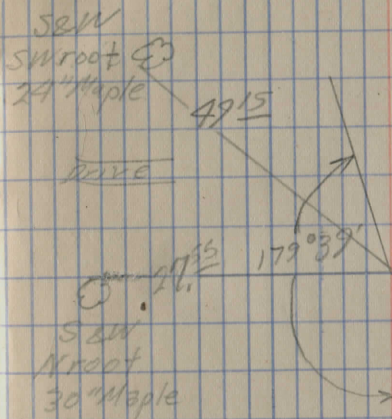 S&W
SW root
24" Maple
49 15
Drive
179°39'
S&W
N root
30" Maple